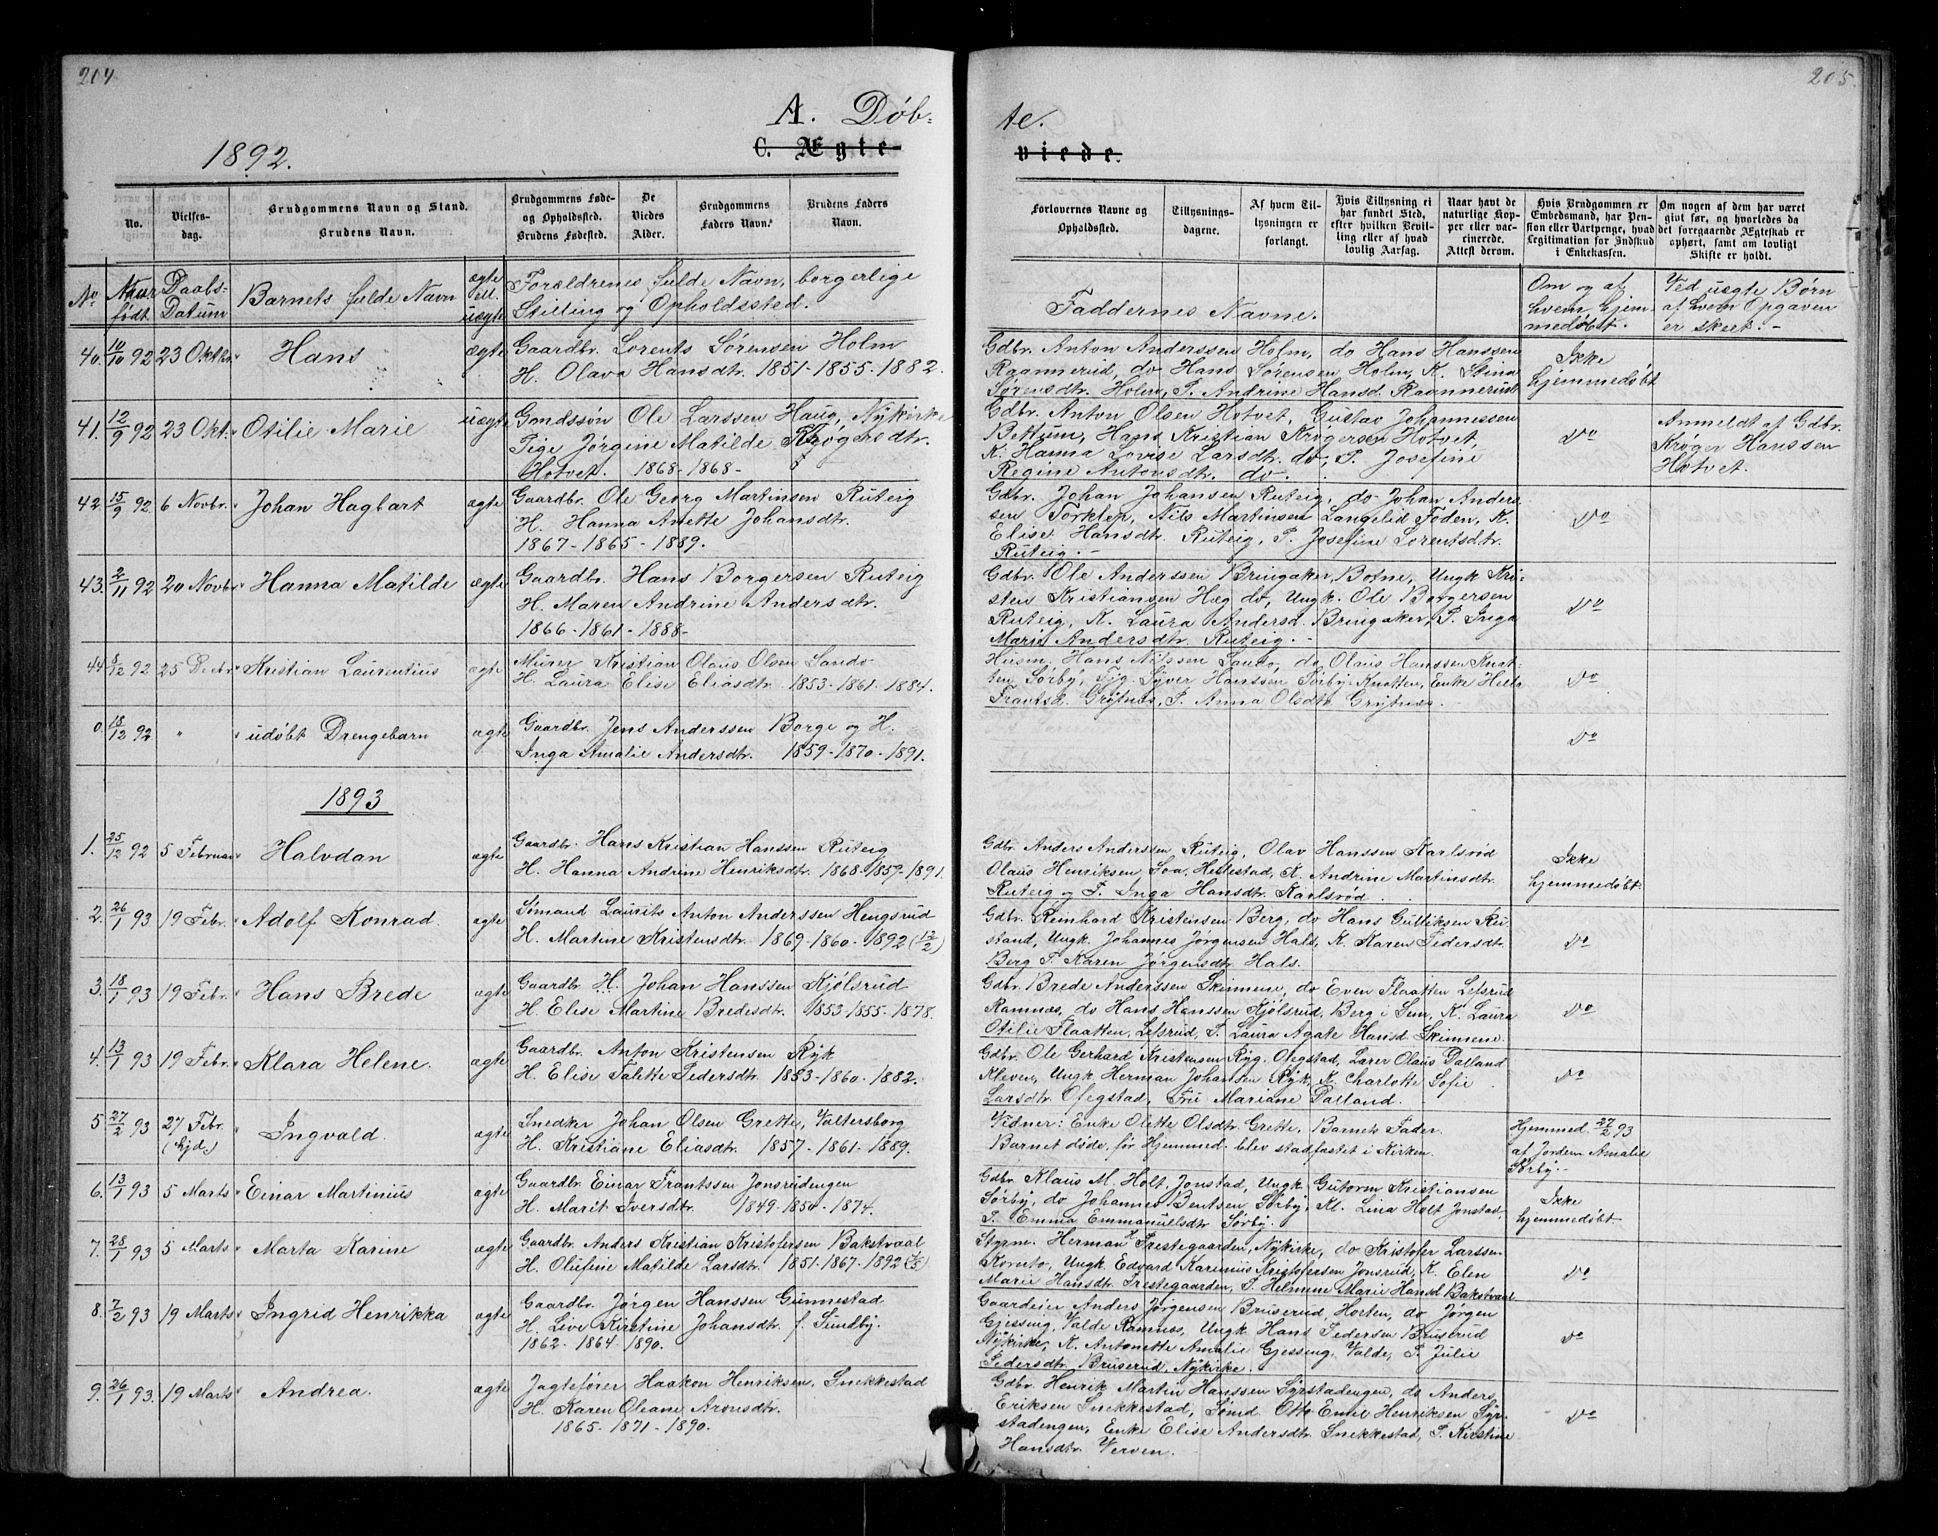 204
205
A. Døb-
te.
C. Ægte-
viede.
1892.
No.
Vielses-dag.
Brudgommens Navn og Stand.
Brudens Navn.
Brudgommens Føde- og Opholdssted.
Brudens Fødested.
De Viedes Alder.
Brudgommens Faders Navn.
Brudens Faders Navn.
Forlovernes Navne og Opholdssted.
Tillysnings-dagene.
Af hvem Tillysningen er forlangt.
Hvis Tillysning ei har fundet Sted, efter hvilken Bevilling eller af hvad lovlig Aarsag.
Naar havt de naturlige Kopper eller vaccinerede. Attest derom.
Hvis Brudgommen er Embedsmand, har Pension eller Vartpenge, hvad Legitimation for Indskud i Enkekassen.
Om nogen af dem har været givt før, og hvorledes da det foregaaende Ægteskab er ophørt, samt om lovligt Skifte er holdt.
No
Naar født.
Daabs-Datum
Barnets fulde Navn
ægte ell. uægte
Forældrenes fulde Navn, borgerlige
Stilling og Opholdssted.
Faddernes Navne.
Om og af hvem hjemmedøbt.
Ved uægte Børn af hvem Opgaven er skeet.
40. 10/10 92 23 Oktbr. Hans ægte
Gaardbr. Lorents Sørensen Holm
H. Olava Hansdtr. 1851-1855-1882.
Gdbr. Anton Anderssen Holm, do Hans Hanssen
Raannerud, do Hans Sørensen Holm, K. Stina
Sørensdtr. Holm, P. Andrine Hansd. Raannerud.
Ikke
hjemmedøbt
41. 12/9 92 23 Okt. Otilie Marie uægte
Gaardssøn Ole Larssen Haug, Nykirke
Pige Jørgine Matilde Krøgersdtr.
Hotvet. 1868-1868-
Gdbr. Anton Olsen Hotvet, Gustav Johannessen
Bettum, Hans Kristian Krøgersen Hotvet,
K. Hanna Lovise Larsdtr. do, P. Josefine
Regine Antonsdtr. do.
Do
Anmeldt af Gdbr.
Krøger Hanssen
Hotvet.
42. 15/9 92 6 Novbr. Johan Hagbart ægte
Gaardbr. Ole Georg Martinsen Ruteig
H. Hanna Anette Johansdtr.
1867-1865-1889.
Gdbr. Johan Johansen Ruteig, do Johan Anders-
sen Torklep, Nils Martinsen Langelid Foden, K.
Elise Hansdtr. Ruteig, P. Josefine Lorentsdtr.
Ruteig.
Do
43. 2/11 92 20 Novbr. Hanna Matilde ægte
Gaardbr. Hans Borgersen Ruteig
H. Maren Andrine Andersdtr.
1866-1861-1888-
Gdbr. Ole Anderssen Bringaker, Botne, Ungk. Kri-
sten Kristiansen Hæg do, Ungk. Ole Borgersen
Ruteig, K. Laura Andersd. Bringaker, P. Inga
Marie Andersdtr. Ruteig.
Do
44. 8/12 92 25 Decbr. Kristian Laurentius ægte
Murer Kristian Olaus Olsen Sando
H. Laura Elise Eliasdtr. 1853-1861-1884.
Husm. Hans Nilssen Sando, do Olaus Hanssen Knat-
ten Sørby, Syver Hanssen Sørby Knatten, Enke Helle
Frantsd. Grytnes, P. Anna Olsdtr Grytnes.
Do
0. 18/12 92 " udøbt Drengebarn ægte
Gaardbr. Jens Anderssen Borge og H.
Inga Amalie Andersdtr. 1859-1870-1891.
Do
1893
1. 25/12 92 5 Februar Halvdan ægte
Gaardbr. Hans Kristian Hanssen Ruteig
H. Hanna Andrine Henriksdtr. 1868-1857-1891.
Gdbr. Anders Anderssen, Ruteig, Olav Hanssen Karlsrød
Olaus Henriksen, Soa, Hillestad, K. Andrine Martinsdtr.
Ruteig og P. Inga Hansdtr. Karlsrød.
Ikke
hjemmedøbt.
2. 26/1 93 19 Febr. Adolf Konrad. ægte
Sømand Laurits Anton Anderssen Hengsrud
H. Martine Kristensdtr. 1869-1860-1892 (12/2)
Gdbr. Reinhard Kristensen Berg, do Hans Gulliksen Ru-
stand, Ungk. Johannes Jørgensen Hals, K. Karen Pedersdtr.
Berg P. Karen Jørgensdtr. Hals.
Do
3. 18/1 93 19 Febr. Hans Brede ægte
Gaardbr. H. Johan Hanssen Kjølsrud
H. Elise Martine Bredesdtr. 1853-1855-1878.
Gdbr. Brede Anderssen Skinmene, do Even Flaatten Lefsrud
Ramnes, do Hans Hanssen Kjølsrud, Berg i Sem, K. Laura
Otilie Flaatten, Lefsrud, P. Laura Agate Hansd. Skinmene.
Do
4. 13/1 93 19 Febr. Klara Helene. ægte
Gaardbr. Anton Kristensen Ryk
H. Elise Talette Pedersdtr. 1853-1860-1882.
Gdbr. Ole Gerhard Kristensen Ryg. Ofegstad, Lærer Olaus Dalland
Kleven, Ungk Herman Johansen Ryk, K. Charlotte Sofie
Larsdtr. Ofegstad, Fru Mariane Dalland.
Do
5 27/2 93 27 Febr. (hjd.) Ingvald. ægte
Snedker Johan Olsen Grette, Valtersborg
H. Kristiane Eliasdtr. 1857-1861-1889.
Vidner: Enke Olette Olsdtr. Grette, Barnets Fader.
Barnet døde, før Hjemmed. blev stadfæstet i Kirken.
Hjemmed. 27/2 93
af Jordem. Amalie
Sørby.
6. 13/1 93 5 Marts Einar Martinius ægte
Gaardbr. Einar Frantssen Jonsrudengen
H. Marit Iversdtr. 1849-1850-1874.
Gdbr. Klaus M. Holt Jonstad, Ungk. Gutorm Kristiansen
Sørby, do Johannes Bentsen Sørby, K. Lina Holt Jonstad,
P. Emma Emmanuelsdtr Sørby.
Ikke
hjemmedøbt
7. 28/1 93 5 Marts Marta Karine ægte
Gaardbr. Anders Kristian Kristofersen Bakstvaal
H. Olufine Matilde Larsdtr. 1851-1867-1892
Styrm. Herman Prestegaarden, Nykirke, do Kristofer Larssen
Kornto, Ungk Edvard Karinius Kristofersen Jonsrud, K. Elen
Marie Hansdtr. Prestegaarden, P. Helmine Marie Hansd Bakstvaal
Do
8. 7/2 93 19 Marts Ingrid Henrikka ægte
Gaardbr. Jørgen Hanssen Gunnestad
H. Live Kirstine Johansdtr. f. Sundby.
1862-1864-1890.
Gaardeier Anders Jørgensen Bruserud, Horten, do Jørgen
Gjessing, Valde Ramnes, Ungk. Hans Pedersen Bruserud
Nykirke, K. Antonette Amalie Gjessing, Valde, P. Julie
Pedersdtr. Bruserud, Nykirke.
Do
9. 26/1 93. 19 Marts Andrea. ægte
Jagtefører Haakon Henriksen, Snekkestad
H. Karen Oleane Aronsdtr.
1865-1871-1890.
Gdbr. Henrik Martin Hanssen Syrstadengen, do Anders
Eriksen Snekkestad, Sømd. Otto Emil Henriksen Syr-
stadengen, Enke Elise Andersdtr Snekkestad, P. Kirstine
Hansdtr. Verven.
Do